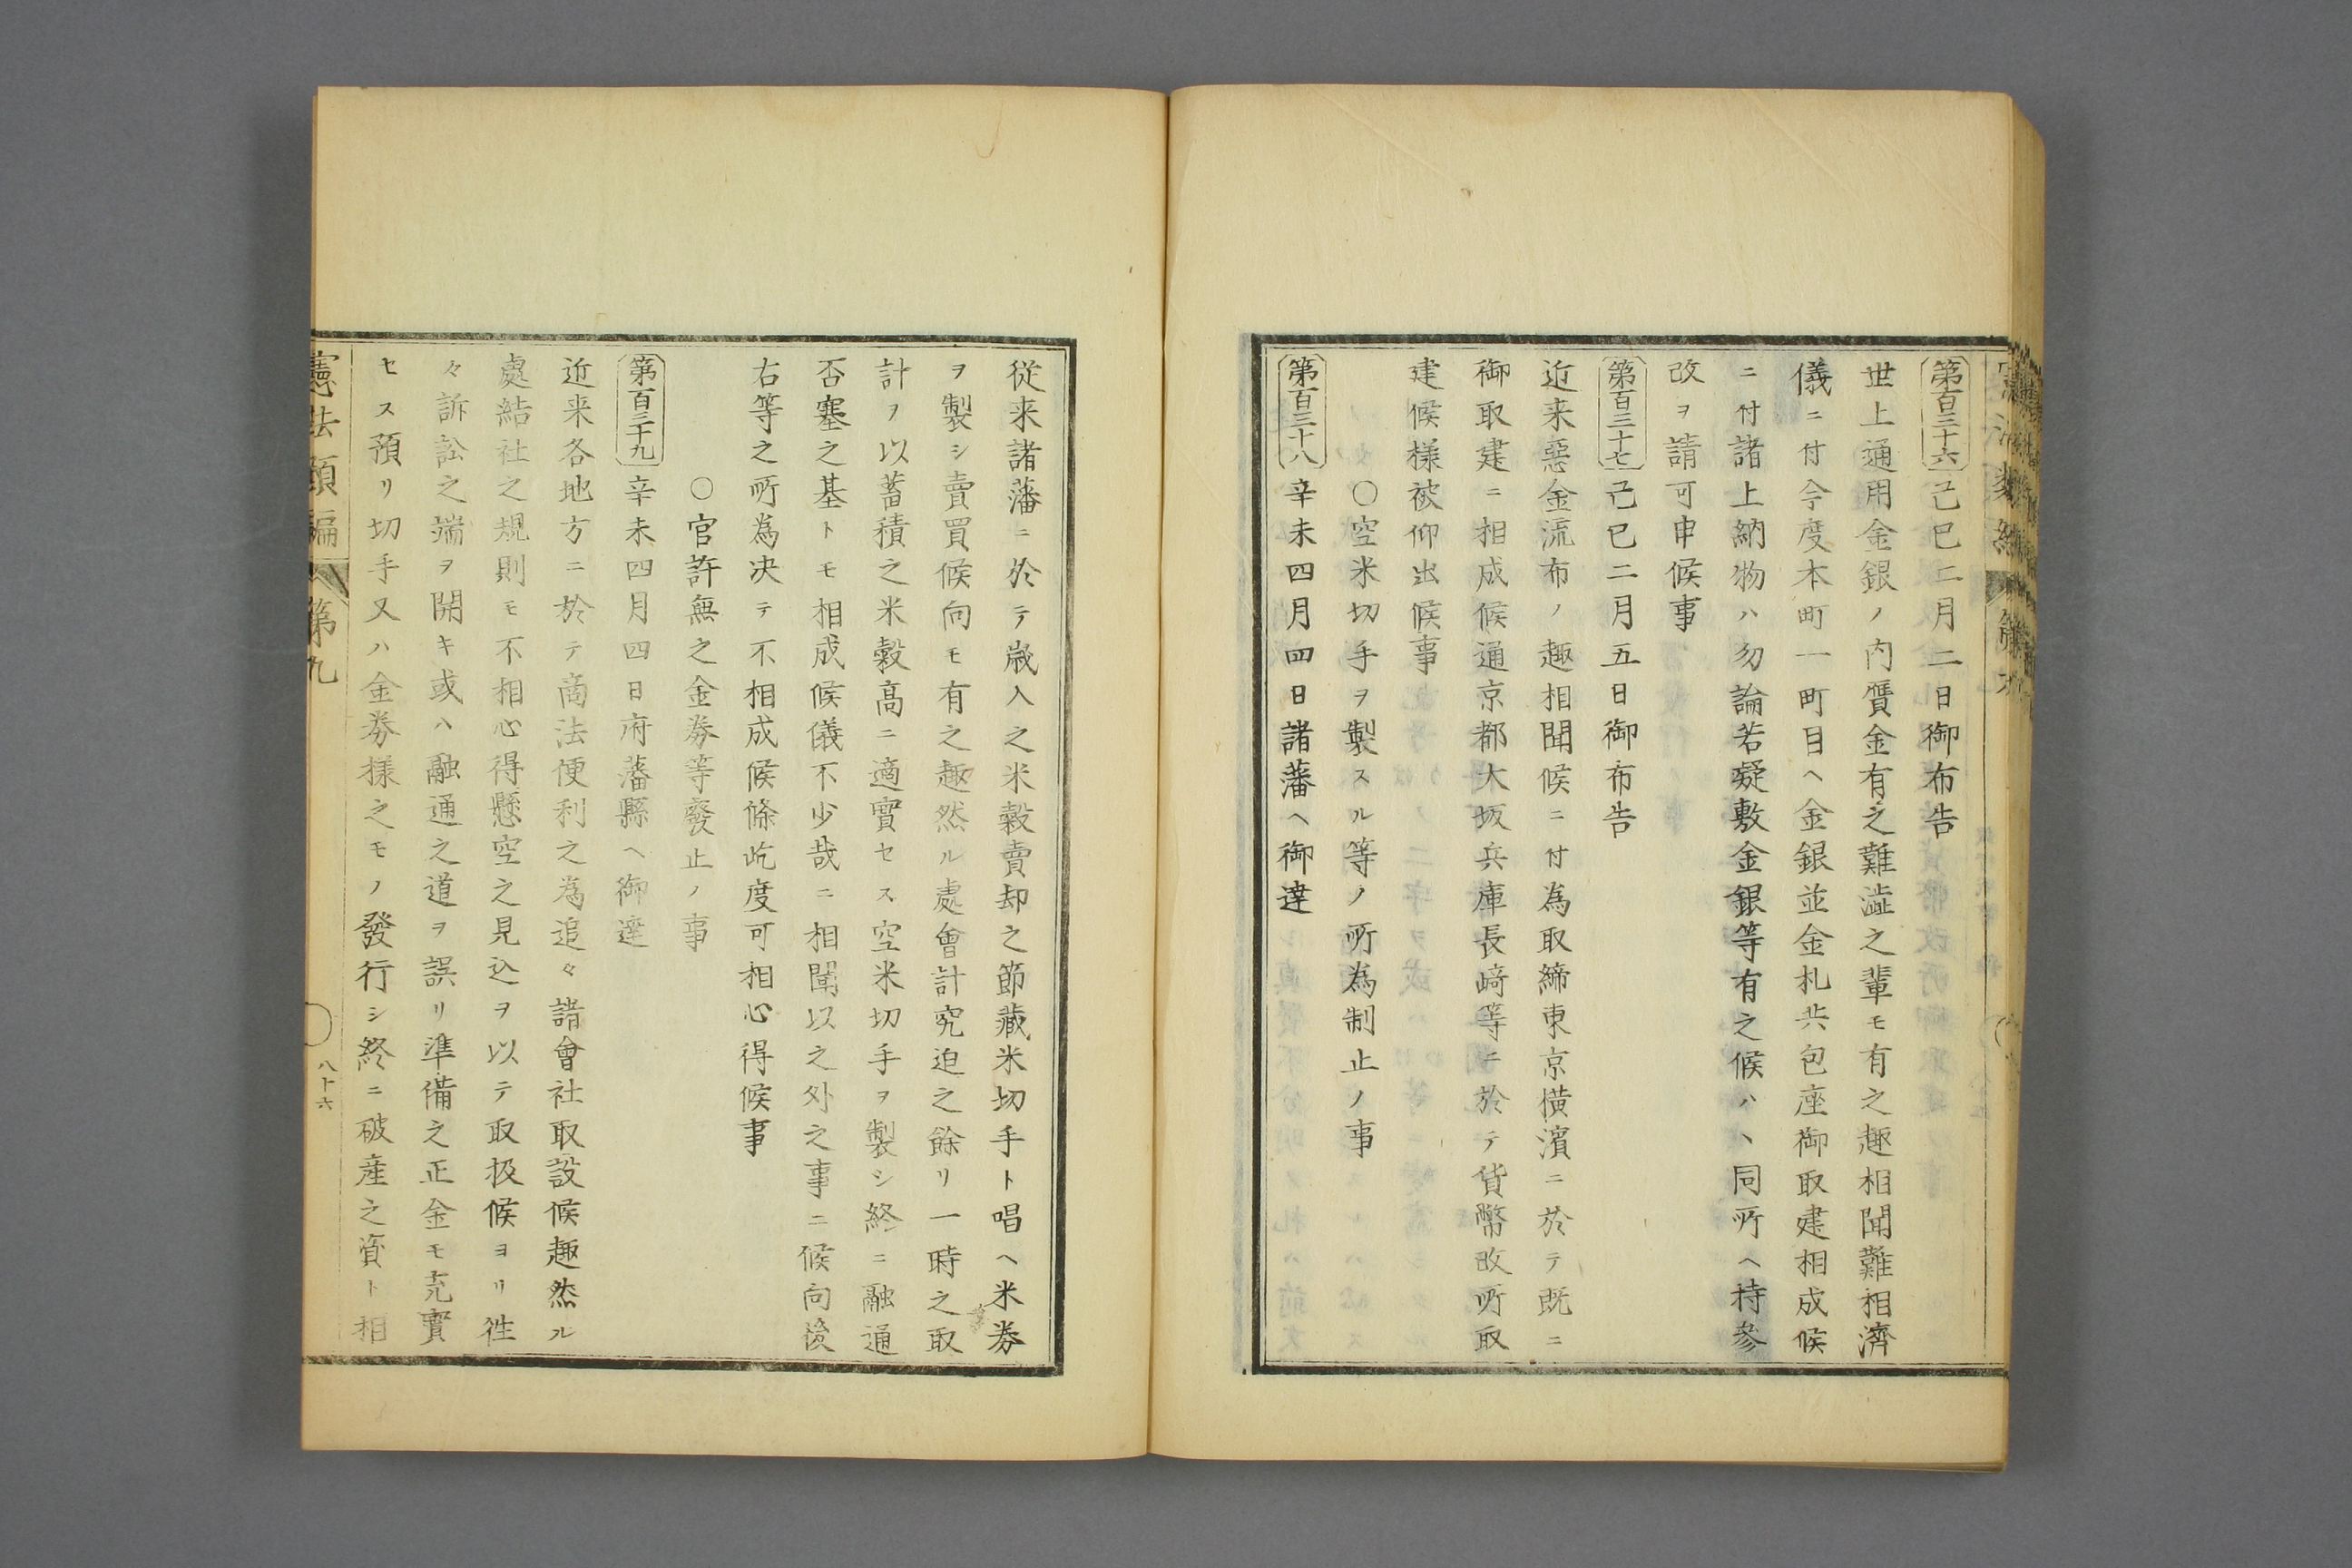 第百三十六 己巳二月二日御布告
世上通用金銀ノ内贋金有之難澁之輩モ有之趣相聞難相濟
儀ニ付今度本町一町目ヘ金銀並金札共包座御取建相成候
ニ付諸上納物ハ勿論若疑敷金銀等有之候ハヽ同所ヘ持參
改ヲ請可申候事
第百三十七 己巳二月五日御布告
近来惡金流布ノ趣相聞候ニ付為取締東京横濱ニ於テ既ニ
御取建ニ相成候通京都大坂兵庫長﨑等ニ於テ貨幣改所取
建候様被仰出候事
○空米切手ヲ製スル等ノ所為制止ノ事
第百三十八 辛未四月四日諸藩ヘ御達
従来諸藩ニ於テ歳入之米穀賣却之節藏米切手ト唱ヘ米券
ヲ製シ賣買候向モ有之趣然ル處會計究迫之餘リ一時之取
計ヲ以蓄積之米穀髙ニ適實セス空米切手ヲ製シ終ニ融通
否塞之基トモ相成候儀不少哉ニ相聞以之外之事ニ候向後
右等之所為决テ不相成候條屹度可相心得候事
○官許無之金券等廢止ノ事
第百三十九 辛未四月四日府藩縣ヘ御達
近来各地方ニ於テ商法便利之為追々諸會社取設候趣然ル
處結社之規則モ不相心得懸空之見込ヲ以テ取扱候ヨリ徃
々訴訟之端ヲ開キ或ハ融通之道ヲ誤リ準備之正金モ充實
セス預リ切手又ハ金券様之モノ發行シ終ニ破産之資ト相
憲法類編 第九
八十六